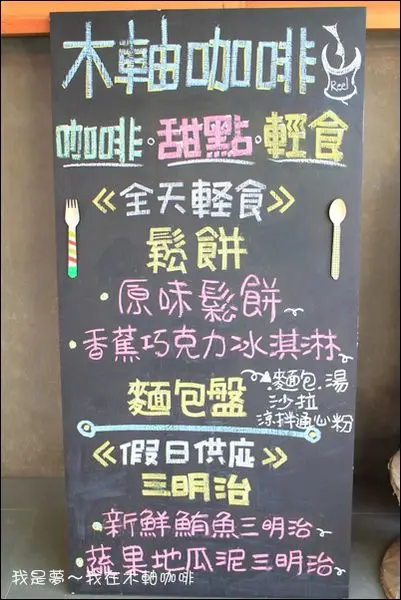 木軸咖啡
Reel
咖啡。甜點。輕食
《全天輕食》
鬆餅
·原味鬆餅。
·香蕉巧克力冰淇淋。
麵包盤
·麵包.湯
沙拉
涼拌通心粉
《假日供应》
三明治
·新鮮鮪魚三明治。
·蔬果地瓜泥三明治。
我是夢~我在木軸咖啡